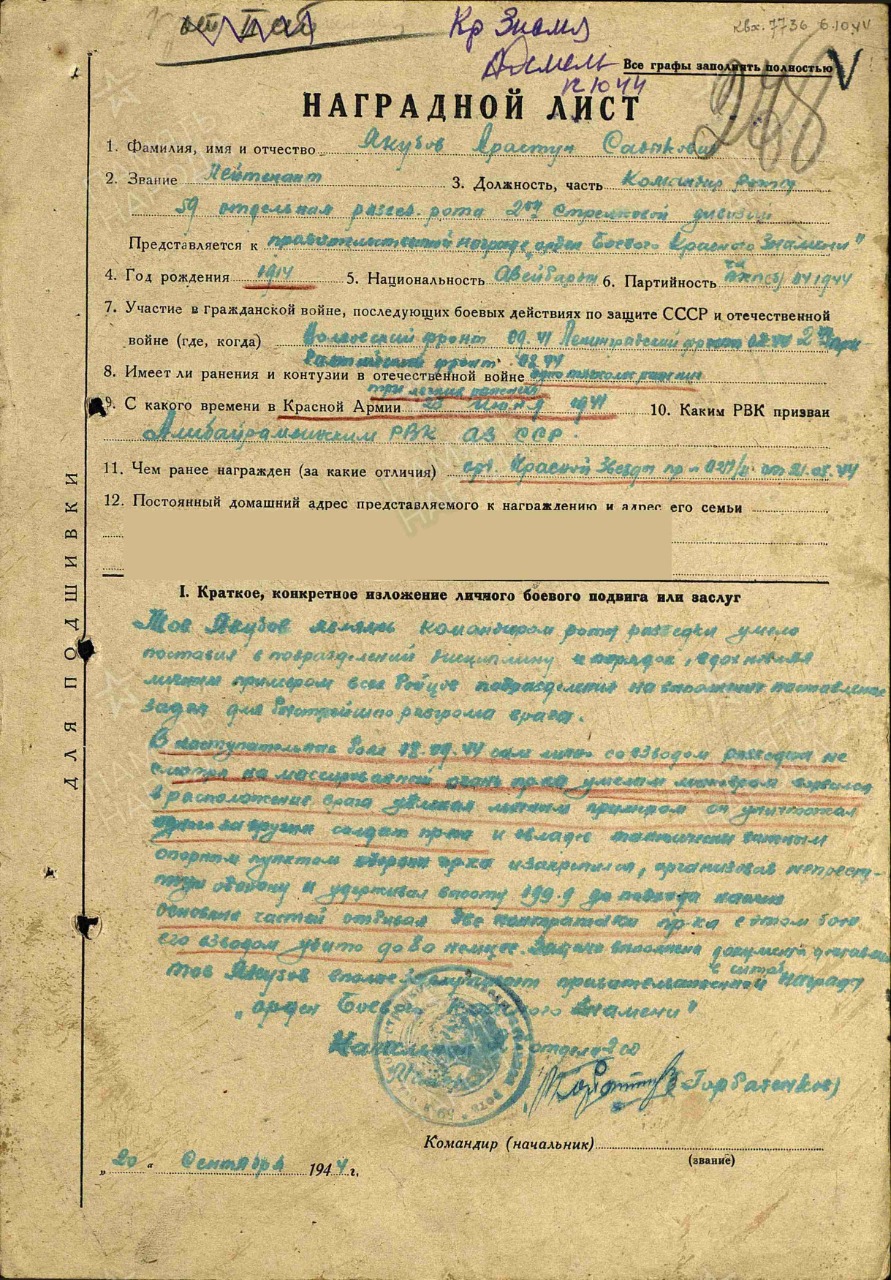 Кр Знамя
Квх. 7736 6.10.44
12.10.44
Все графы заполнять полностью
268
НАГРАДНОЙ ЛИСТ
1. Фамилия, имя и отчество Якубов Арастун
2. Звание Лейтенант 3. Должность, часть Командир роты
59 отдельная развед. рота 2ой Стрелковой дивизии
Представляется к правительственной награде „орден Боевого Красного Знамени"
4. Год рождения 1914 5. Национальность 6. Партийность 1944
7. Участие в гражданской войне, последующих боевых действиях по защите СССР и отечественной
войне (где, когда) Волховский фронт 09.41 Ленинградский фронт 2
фронт
8. Имеет ли ранения и контузии в отечественной войне одно тяжелое ранение
три легких ранения
9. С какого времени в Красной Армии июня 1941 10. Каким РВК призван
РВК АЗ ССР.
11. Чем ранее награжден (за какие отличия) орд. Красной Звезды пр-
12. Постоянный домашний адрес представляемого к награждению и адрес его семьи
ДЛЯ ПОДШИВКИ
I. Краткое, конкретное изложение личного боевого подвига или заслуг
Тов Якубов являясь командиром роты разведки умело
поставил в подразделений дисциплину и порядок, вдохновляя
личным примером всех бойцов подразделения на выполнение поставленных
задач для быстрейшего разгрома врага.
В наступательных боях 18.09.44 сам лично со взводом разведки не
смотря на массированный огонь пр-ка умелым маневром ворвался
в расположение врага увлекая личным примером он уничтожал
одного за другим солдат пр-ка и овладев тактически важным
опорным пунктом обороны пр-ка и закрепился, организовал непрест-
пную оборону и удерживал высоту 199.9 до подхода наших
основных частей отбивая две контратаки пр-ка в этом бою
его взводом убито до 80 немцев. Задача выполнена документы доставлены
в штаб
Тов Якубов вполне правительственной награды
„орден Боевого Красного Знамени"
Начальник отдела
(Горбатенков)
Командир (начальник)
(звание)
„20" Сентября 1944 г.